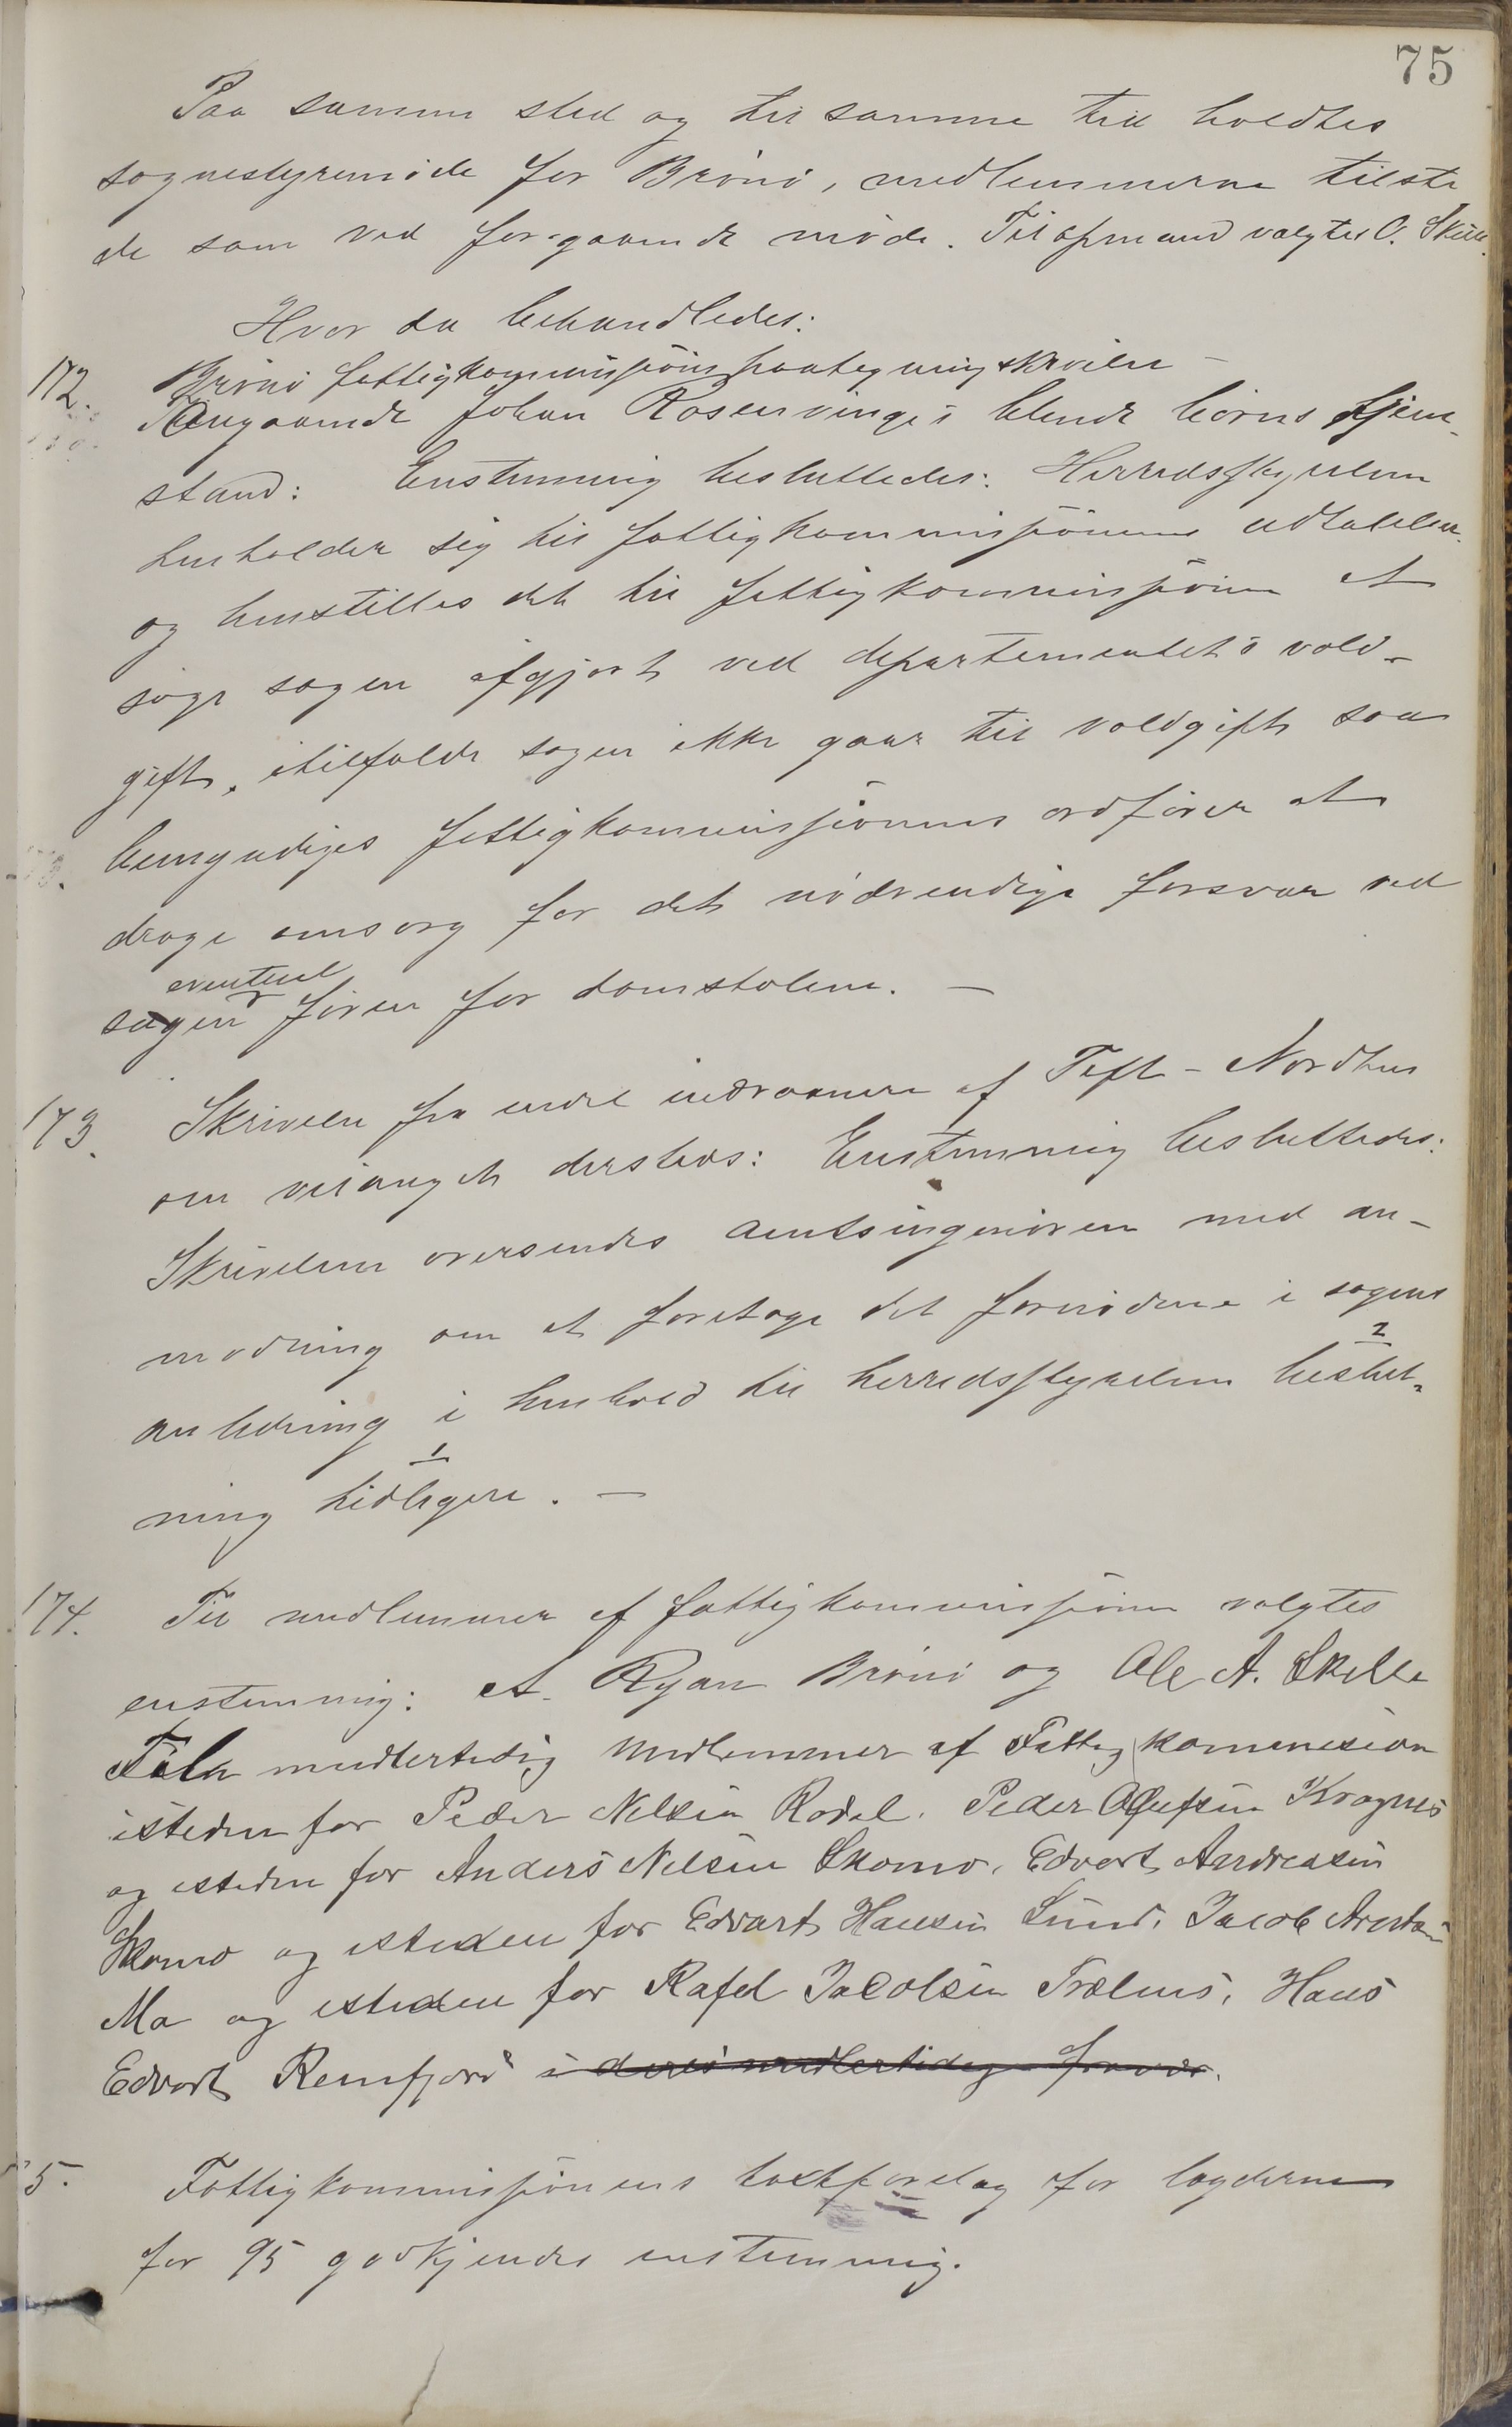 75
Paa samme sted og til samme tid holdtes
sognestyremøde for Brønø, medlemmerne tilste
de som ved foregaaende møde. Til opmand valgtes O. Skille.
Hvor da behandledes:
172. Brønø fattigkommissions paategningsskrivelse –
Angaaende Johan Rosenvinges blinde børns hjem-
stand: Enstemmig besluttedes: Herredsstyrelsen
henholder sig til fattigkommissionens udtalelser.
og henstilles det til fattigkommissionen at
søge sagen afgjort ved departementets vold-
gift, itilfælde sagen ikke gaar til voldgift saa
bemyndiges fattigkommissionens ordfører at
drage omsorg for det nødvendige forsvar ved
eventuel
sagen føren for domstolene. –
173. Skrivelse fra endel indvaanere af Toft - Nordhus
om veianlæg dersteds: Enstemmig besluttedes:
Skrivelsen oversendes amtsingeniøren med an-
modning om at foretage det fornødne i sagens
2
anledning i henhold til herredsstyrelsens beslut-
1
ning tidligere. –
174. Til medlemmer af fattigkommissionen valgtes
enstemmig: A. Ryan Brønø og Ole A. Skille
midlertidig medlemmer af Fattigkommission
isteden for Peder Nelsen Rødel. Peder Olufsen Krognes
og isteden for Anders Nelsen Skomo, Edvart Andreasen
Skomo og isteden for Edvart Hansen Sund. Jacob
Mo og isteden for Rafel Jacobsen Trælnes, Hans
Edvart Remfjord i deres midlertidige
5. Fattigkommissionens forslag for lægderne
for 95 godkjendes enstemmig.